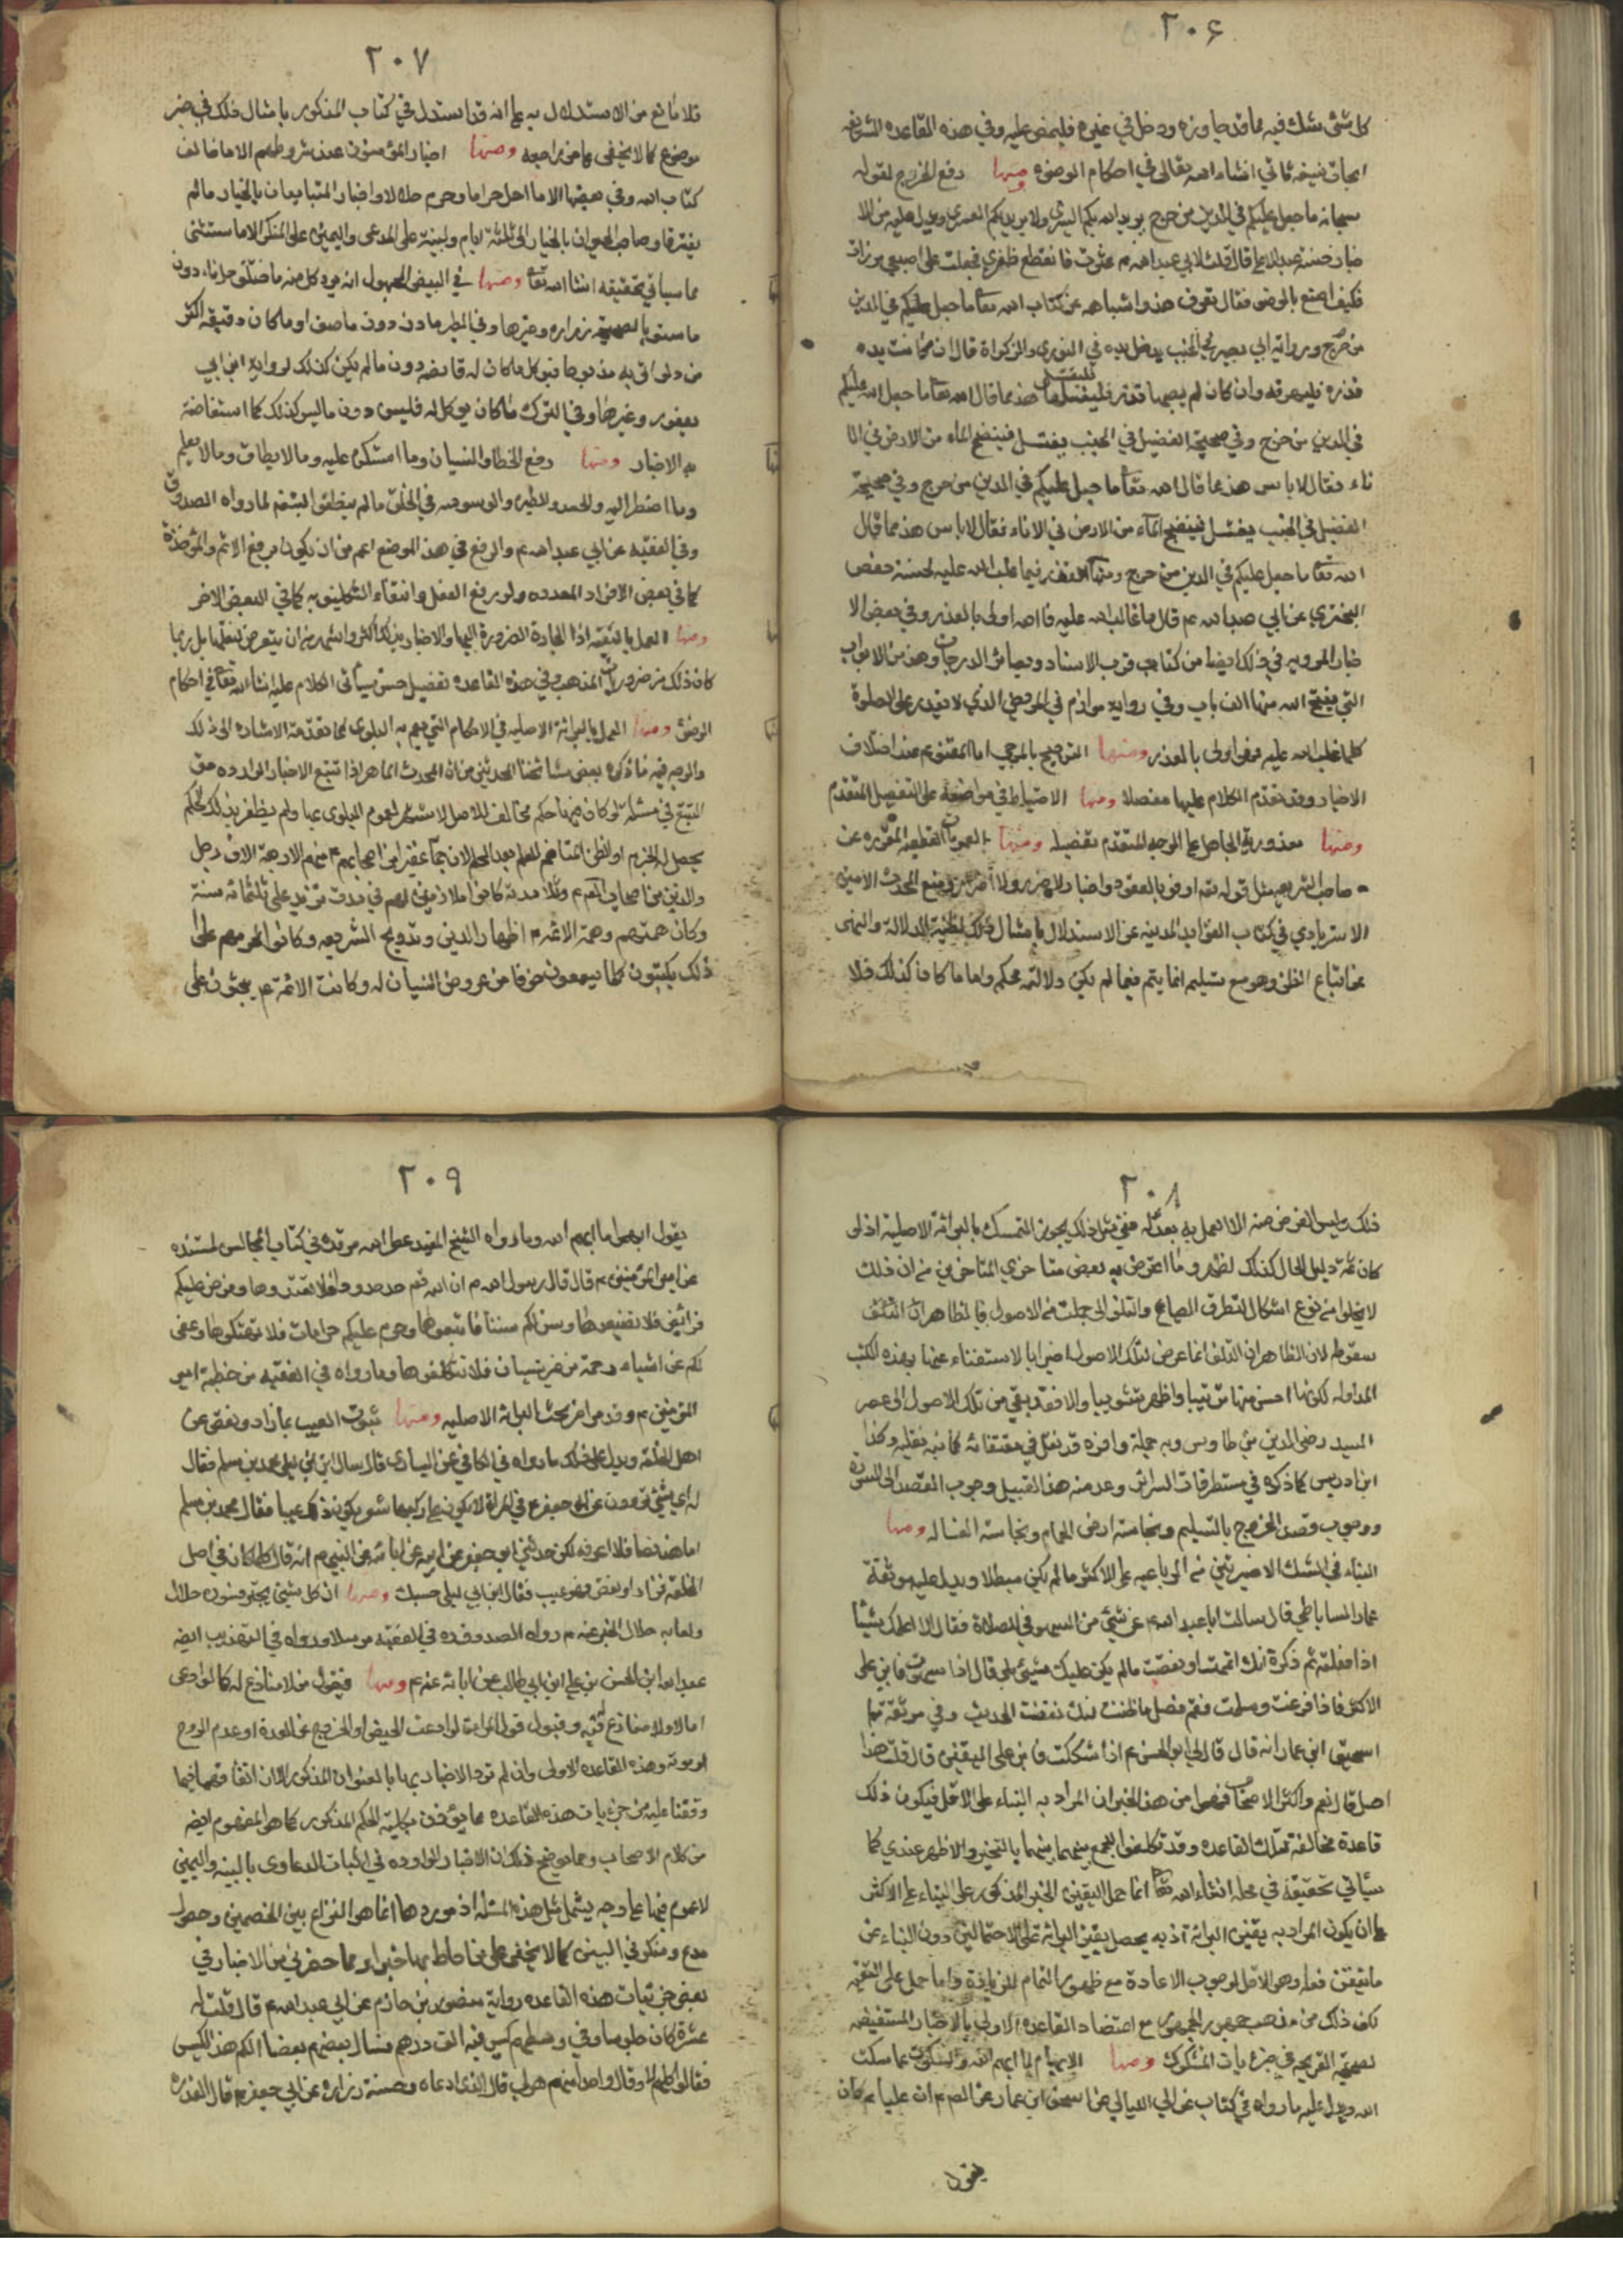 ٢٠۶
كل شئ شك فيه مما قد جاوزه ودخل في غيره فليمض عليه وفي هذه القاعدة الشريفة
ابحاث نفيسة تاتي انشاء الله تعالى في احكام الوضوء ومنها دفع الحرج لقوله
سبحانه ما جعل عليكم في الدين من حرج يريد الله بكم اليسر ولا يريد بكم العسر ويدل عليه من الا
خبار حسنة عبد الاعلى قال قلت لابي عبد الله م عثرت فانقطع ظفري فجعلت على اصبعي مرارة
فكيف اصنع بالوضوء فقال تعرف هذا واشباهه من كتاب الله تعا ما جعل عليكم في الدين
من حرج ورواية ابي بصير في الجنب يدخل يده في التور والركوة قال ان كانت يده
قذرة فليهرقه وان كان لم يصبها قذر فليغتسل منه هذا مما قال الله تعا ما جعل الله عليكم
في الدين من حرج وفي صحيحة الفضيل في الجنب يغتسل فينضح الماء من الارض في الا
ناء فقال لا باس هذا مما قال الله تعا ما جعل عليكم في الدين من حرج وفي صحيحة
الفضيل في الجنب يغتسل فينضح الماء من الارض في الاناء فقال لا باس هذا مما قال
الله تعا ما جعل عليكم في الدين من حرج ومنها العذر فيما غلب الله عليه لحسنة حفص
البختري عن ابي عبد الله م قال ما غالب الله عليه فالله اولى بالعذر وفي بعض الا
خبار المروية في ذلك ايضا من كتاب قرب الاسناد وبصائر الدرجات وهذا من الابواب
التي يفتح الله منها الف باب وفي رواية مرازم في المريض الذي لا يقدر على الصلوة
كلما غلب الله عليه فهو اولى بالعذر ومنها الترجيح بالمرجحات المنصوصة عند اختلاف
الاخبار وقد تقدم الكلام عليها مفصلا ومنها الاحتياط في مواضعه على التفصيل المتقدم
ومنها معذورية الجاهل على الوجه المتقدم تفصيله ومنها العمومات القطعية المقررة عن
صاحب الشريعة مثل قوله تعه اوفوا بالعقود واخبار لا ضرر ولا اضرار ومنع المحدث الامين
الاستربادي في كتاب الفوائد المدنية عن الاستدلال بامثال ذلك لظنية الدلالة والنهى
عن اتباع الظن وهو مع تسليمه انما يتم فيما لم يكن دلالته محكمة واما ما كان كذلك فلا
٢٠٧
فلا مانع من الاستدلال به على انه قد استدل في كتاب المذكور بامثال ذلك في غير
موضع كما لا يخفى على من راجعه ومنها اخبار المؤمنون عند شروطهم الا ما خالف
كتاب الله وفي بعضها الا ما احل حراما وحرم حلالا واخبار المتبايعان بالخيار ما لم
يفترقا وصاحب الحيوان بالخيار الى ثلثة ايام والبينة على المدعى واليمين على المنكر الا ما ستثنى
مما سياتي تحقيقه انشا الله تعا ومنها في البيض المجهول انه يؤكل منه ما اختلف طرفاه دون
ما ستوا لصحيحة زرارة وغيرها وفي الطير ما دف دون ما صف او ما كان دفيفه اكثر
من دلو اتى به مذبوحا فيؤكل ما كان له قانصة دون ما لم يكن كذلك لرواية ابن ابي
يعفور وغيرها وفي السمك ما كان يؤكل له فليس دون ما ليس كذلك كما استفاضة
به الاخبار ومنها رفع الخطا والنسيان وما استكره عليه وما لا يطاق وما لا يعلم
وما اضطر اليه والحسد والطيرة والوسوسة في الخلق ما لم ينطق بشفة لما رواه الصدوق
وفي الفقيه عن ابي عبد الله م والرفع في هذا الموضع اعم من ان يكون برفع الاثم والمؤاخذة
كما في بعض الافراد المعدودة او برفع الفعل وانتفاء التكليف به كما في البعض الاخر
ومنها العمل بالتقية اذا الجاءت الضرورة اليها والاخبار بذلك اكثر واشهر من ان يتعرض لنقلها بل ربما
كان ذلك من ضروريات المذهب وفي هذه القاعدة تفصيل حسن سيأتى الكلام عليه انشاء الله تعا في احكام
الوضوء ومنها العمل بالبرائة الاصلية في الاحكام التي يعم به البلوى كما تقدمت الاشارة الى ذلك
والوجه فيه ما ذكره بعض مشائخنا المحدثين من ان المحدث الماهر اذا تتبع الاخبار الواردة حق
التتبع في مسئلة لو كان فيها حكم مخالف للاصل لاشتهر لعموم البلوى بها ولم يظفر بذلك الحكم
يحصل له الجزم او الظن المتاخم للعلم بعدم الحكم لان جما غفيرا من اصحابهم م منهم الاربعة الاف رجل
والذين من اصحاب الصادق م وتلامذته كانوا ملازمين لهم في مدة تزيد على ثلثمائة سنة
وكان همتهم وهمة الائمة م اظهار الدين وترويج الشريعة وكانوا لحرصهم على
ذلك يكتبون كلما يسمعون خوفا من عروض النسيان له وكانت الائمة م يحثون على
٢٠٨
ذلك وليس الغرض منه الا العمل به بعدهم ففي مثل ذلك يجوز التمسك بالبرائة الاصلية اذ لو
كان ثمة دليل والحال كذلك لظهر وما اعترض به بعض متاخري المتاخرين من ان ذلك
لا يخلوا من نوع اشكال لتطرق الضياع والتلف الى جملة من الاصول فالظاهر ان التلف
سقوطه لان الظاهر ان التلف انما عرض لتلك الاصول اخيرا بالاستغناء عنها بهذه الكتب
المداولة لكونها احسن منها ترتيبا واظهر تبويبا والا فقد بقي من تلك الاصول الى عصر
السيد رضى الدين بن طاوس وبه جملة وافرة قد نقل في مصنفاته كما نبه بنقله وكذا
ابن ادريس كما ذكره في مستطرفات السرائر وعد منه هذا القبيل وجوب القصد الى السورة
ووجوب قصد الخروج بالتسليم ونجاسة ارض الحمام ونجاسة الغسالة ومنها
البناء في الشك الاخيرتين من الرباعية على الاكثر ما لم يكن مبطلا ويدل عليه موثقة
عمار الساباطي قال سالت ابا عبد الله م عن شئ من السهو في الصلاة فقال الا اعلمك شيئا
اذا فعلته ثم ذكرت انك اتممت او نقصت ما لم يكن عليك شيئ بلى قال اذا سهوت فابن على
الاكثر فاذا فرغت وسلمت فقم فصل ما ظننت انك نقصت الحديث وفي موثقة
اسحق ابن عمار انه قال قال لي ابو الحسن م اذا شككت فابن على اليقين قال قلت هذا
اصل قال نعم واكثر الاصحاب فهموا من هذا الخبر ان المراد به البناء على الاقل فيكون ذلك
قاعدة مخالفة لتلك القاعدة وقد تكلفوا الجمع بينهما بالتخيير والاظهر عندي كما
سيأتي تحقيقه في محله انشاء الله تعا انما حمل اليقين الخبر المذكور على البناء على الاكثر
بان يكون المراد به يقين البرائة اذ به يحصل يقين البرائة على الاحتمالين دون البناء على
ما تيقن فعله وهو الاقل لوجوب الاعادة مع ظهور التمام للزيادة واما حمل على التقية
لكون ذلك من مذهب جمهور الجمهور مع اعتضاد القاعدة الاولى بالاخبار المستفيضة
الصحيحة الصريحة في جزئيات الشكوك ومنها الابهام لما ابهم الله والسكوت عما سكت
الله ويدل عليه ما رواه في كتاب غوالي الليالي عن اسحق ابن عمار عن الصم م ان عليا م كان
يقول
٢٠٩
يقول ابهموا ما ابهم الله وما رواه الشيخ المفيد عطر الله مرقده في كتاب المجالس لمستنده
عن امير المؤمنين م قال قال رسول الله م ان الله تعه حد حدودا فلا تعتدوها وفرض عليكم
فرائض فلا تضيعوها وسن لكم سننا فاتبعوها وحرم عليكم حرامات فلا تهتكوها وعفى
لكم عن اشياء رحمة من غير نسيان فلا تتكلفوها وما رواه في الفقيه من خطبة امير
المؤمنين م وقد مر اخر بحث البرائة الاصلية ومنها ثبوت العيب بما زاد ونقص عن
اصل الخلقة ويدل على ذلك ما رواه في الكافي عن السياري قال سال ابن ابي ليلى محمد بن مسلم فقال
له اي شئ تروون عن ابي جعفر م في المراة لا يكون على ركبها شعر يكون ذلك عيبا فقال محمد بن مسلم
اما هذا نصا فلا اعرفه لكن حدثني ابو جعفر عن ابيه عن ابائه عن النبي م انه قال كلما كان في اصل
الخلقة فزاد او نقص فهو عيب فقال ابن ابي ليلى حسبك ومنها ان كل شئ يجتر فسؤره حلال
ولعابه حلال الخبر عنه م رواه الصدوق في الفقيه مرسلا ورواه في التهذيب ايضه
عبد الله ابن الحسن بن علي ابن ابي طالب عن ابائه عنه م ومنها قبول من لا منازع له كما لو ادعى
امالا ولا منازع فيه وقبول قول المراة لو ادعت الحيض او الخروج عن العدة او عدم الزوج
او موته وهذه القاعدة الاولى وان لم ترد الاخبار بها بالعنوان المذكور الا ان اتفاقهما فيما
وقفنا عليه من جزئيات هذه القاعدة مما يؤذن بكلية الحكم المذكور كما هو المفهوم ايضه
من كلام الاصحاب ومما يوضح ذلك ان الاخبار الواردة في اثبات الدعاوى بالبينة واليمين
لا عموم فيها على وجه يشمل مثل هذه المسئلة اذ موردها انما هو النزاع بين الخصمين وحصول
مدع ومنكر في البين كما لا يخفى على من احاط بها خبرا ومما حضرني من الاخبار في
بعض جزئيات هذه القاعدة رواية منصور بن حازم عن ابي عبد الله م قال قلت له
عشرة كان جلوسا وفي وسطهم كيس فيه الف درهم فسال بعضهم بعضا الكم هذا الكيس
فقالوا كلهم لا وقال واحد منهم هو لي قال للذي ادعاه وحسنة زرارة عن ابي جعفر م قال العدة